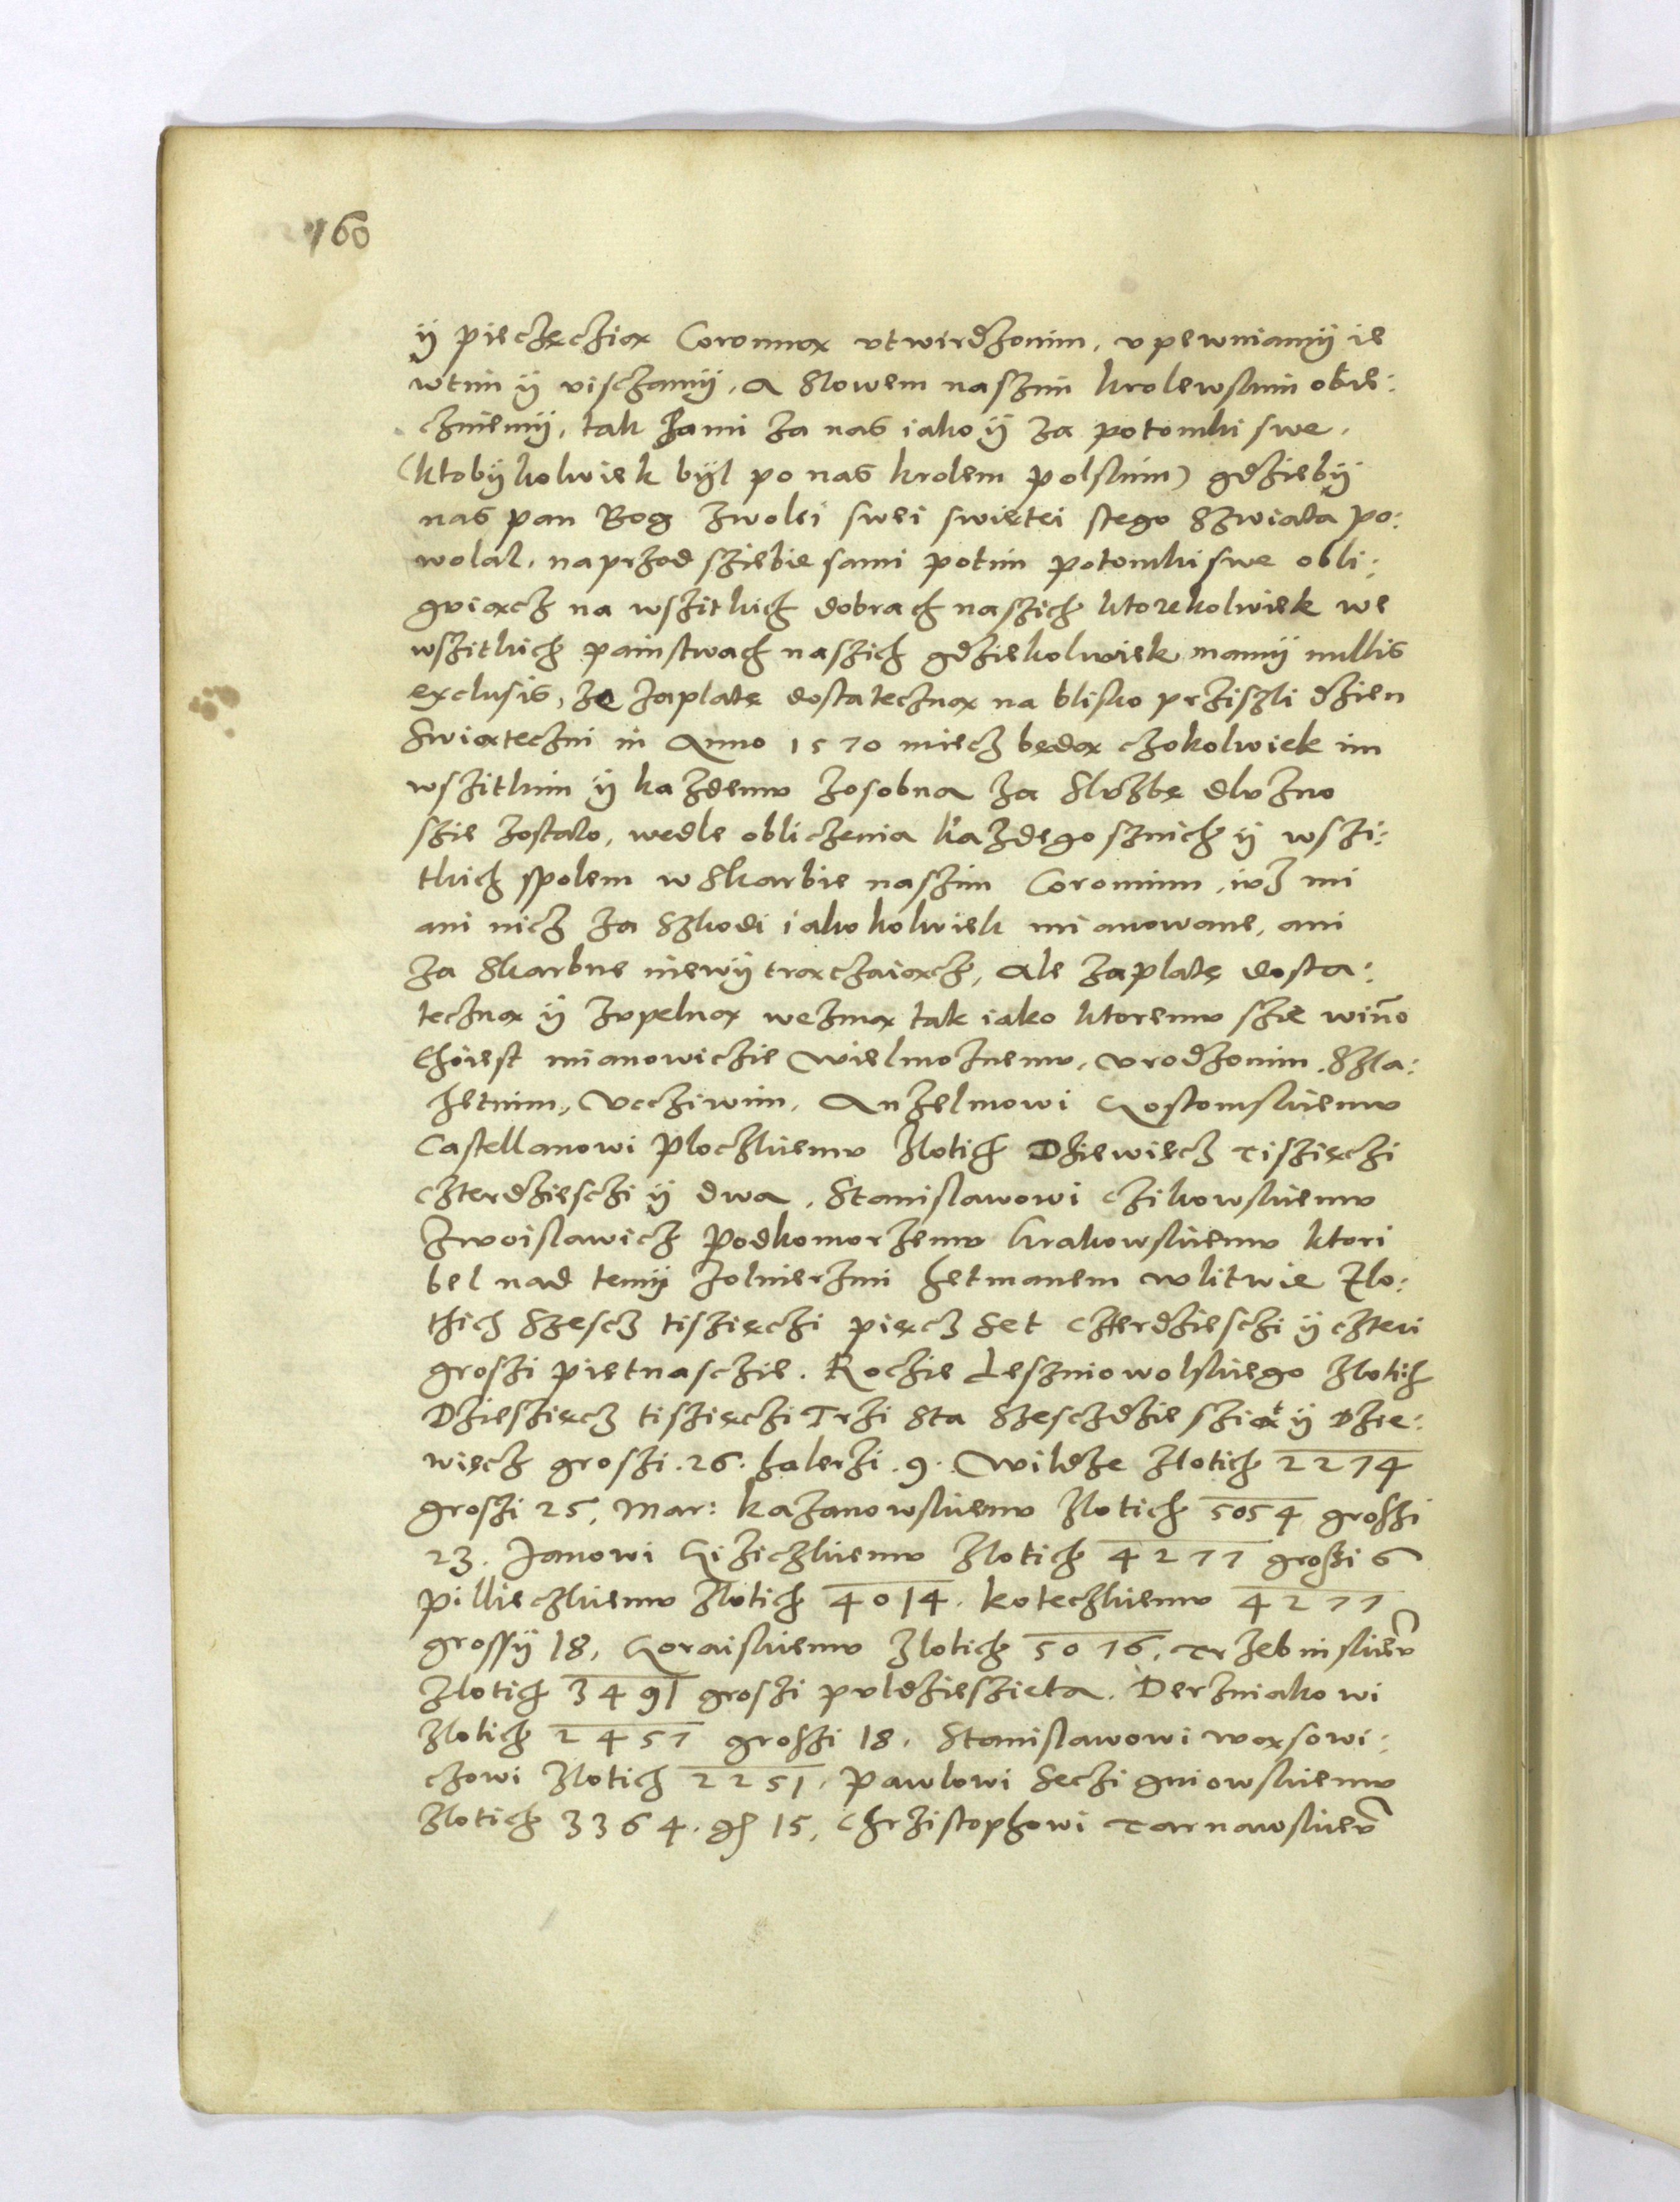 160
ÿ pieczęczią Coronną vtwirdzonim, vpewniamÿ ie
wtim ÿ visczamÿ, a Slowem naszim krolewskim obie:
cznïemÿ, tak sami za nas iako ÿ za potomki swe,
(ktobÿkolwiek bÿl po nas krolem polskim) gdziebÿ
nas pan Bog zwolei swei swiętei stego Szwiata po:
wolal, naprzod sziebie sami potim potomki swe obli:
guiącz na wszitkich dobrach naszich ktorekolwiek we
wszitkich painstwach naszich gdziekolwiek mamÿ nullis
exclusis, ze zaplatę dostateczną na blisko prziszli dzien
Swiąteczni in Anno 1570 miecz będą czokolwiek im
wszitkim ÿ kazdemu zosobna za Sluzbę dluzno
szie zostalo, wedle obliczenia kazdego sznich ÿ wszi:
tkich spolem w Skarbie naszim Coronnim, iuz mi
ani nicz za Szkodi iakokolwiek mianowane, ani
za Skarbne niewÿtrączaiącz, Ale zaplatę dosta:
teczną ÿ zupelną wezmą tak iako ktoremu szie wiño
Thoiest mianowiczie Wielmoznemu, Vrodzonim, Szla:
hetnim, Vccziwim, Anzelmowi Gostomskiemu
Castellanowi Ploczkiemu Zlotich Dziewięcz Tisziączi
czterdziesczi ÿ dwa, Stanislawowi Czikowskiemu
Zwoislawicz Podkomorzemu Krakowskiemu ktori
bel nad temÿ zolnierzmi hetmanem wlitwie Zlo:
thich Szescz tiszięczi pięcz Set czterdziesczi ÿ czteri
groszi pietnasczie. Rochie Leszniowolskiego Zlotich
Dzieszięcz tiszięczi Trzi Sta Szesczdziesziąt ÿ Dzie:
więcz groszi. 26. halerzi. 9. Wildze Zlotich 2274
groszi 25, Mar: Kazanowskiemu Zlotich 5054 groszi
23. Janowi Giziczkiemu Zlotich 4277 groszi 6
Pillieczkiemu Zlotich 4014. Koteczkiemu 4277
grossÿ 18, Goraiskiemu Zlotich 5016, Trzebinskieũ
Zlotich 3491 groszi puldzieszieta. Derzniakowi
Zlotich 2457 groszi 18, Stanislawowi wąsowi:
czowi Zlotich 2251. Pawlowi Seczigniowskiemu
Zlotich 3364. gr 15, Chrzistophowi Tarnawskieũ